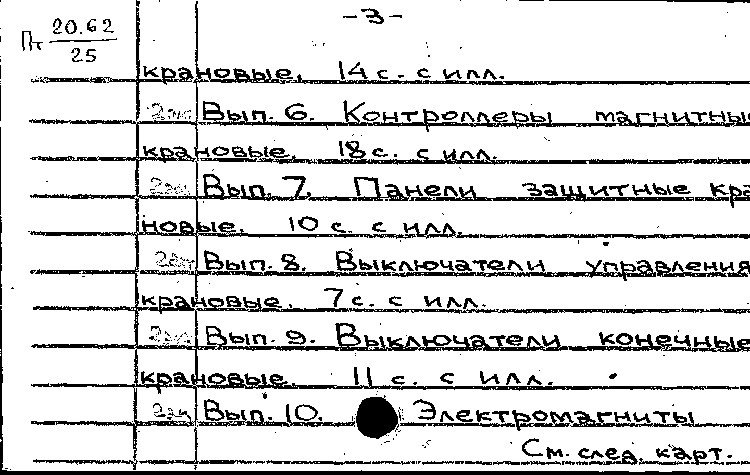 -3-
Пт 20.62
25
крановые. 14 с. с илл.
2экз Вып. 6. Контроллеры магнитные
крановые. 18 с. с илл.
2экз Вып. 7. Панели защитные кра
новые. 10 с. с илл.
2экз Вып. 8. Выключатели управления
крановые. 7 с. с илл.
2экз Вып. 9. Выключатели конечные
крановые. 11 с. с илл.
2экз Вып. 10. Электромагниты
См. след. карт.